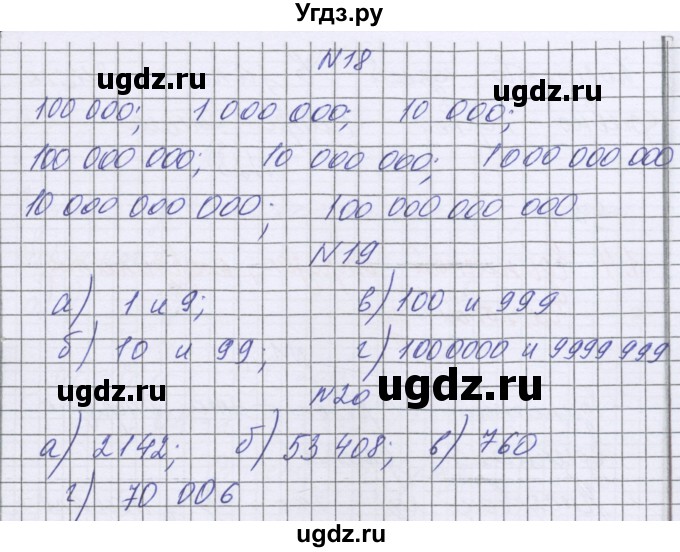 Угдз.ру
N18
ugdz.ru ugdz.ru
100 000; 1 000 000; 10 000;
100 000 000; 10 000 000; 1000 000 000
10 000 000 000; 100 000 000 000
N19
а) 1 и 9; в) 100 и 999
б) 10 и 99; г) 1000000 и 9999 999
ugdz.ru N20 ugdz.ru
а) 2142; б) 53 408; в) 760
г) 70 006
ugdz.ru